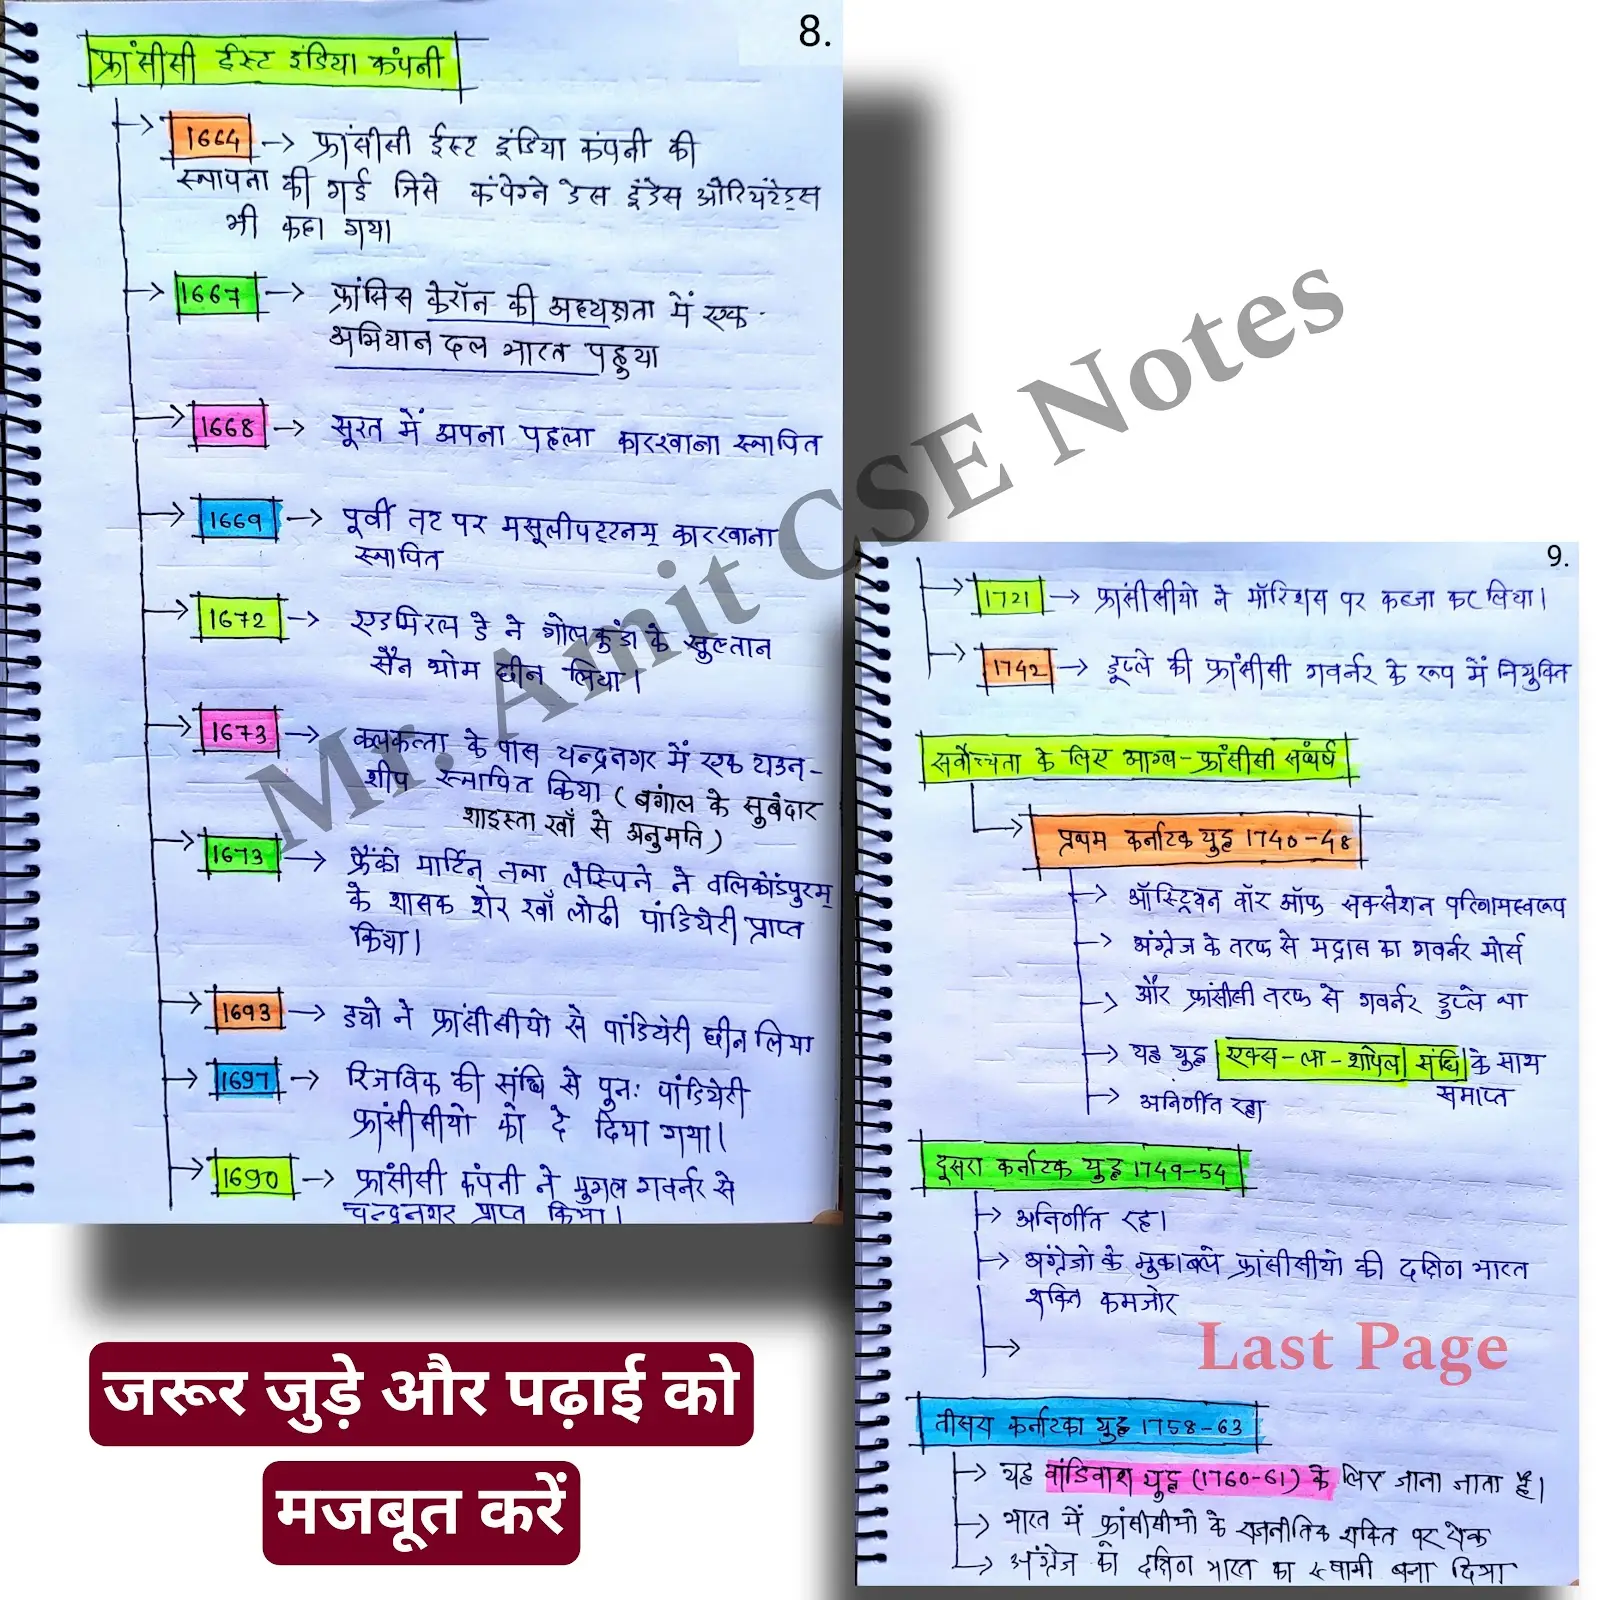 8.
फ्रांसीसी ईस्ट इंडिया कंपनी
1664 → फ्रांसीसी ईस्ट इंडिया कंपनी की
स्थापना की गई जिसे कंपेग्ने डेस इंडेस ओरियंटेड्स
भी कहा गया।
1667 → फ्रांसिस केरॉन की अध्यक्षता में एक
अभियान दल भारत पहुया
1668 → सूरत में अपना पहला कारखाना स्थापित
1669 → पूर्वी तट पर मसूलीपट्टनम् कारखाना
स्थापित
1672 → एडमिरल डे ने गोलकुंडा के सुल्तान
सैन थोम छीन लिया।
1673 → कलकत्ता के पास चन्द्रनगर में एक टाउन-
शीप स्थापित किया (बंगाल के सुबेदार
शाइस्ता खाँ से अनुमति)
1673 → फ्रैंको मार्टिन तथा लेस्पिने ने वलिकोंडपुरम्
के शासक शेर खाँ लोदी पांडियेरी प्राप्त
किया।
1693 → डचो ने फ्रांसीसीयो से पांडियेरी छीन लिया
1697 → रिजविक की संधि से पुनः पांडियेरी
फ्रांसीसीयो को दे दिया गया।
1690 → फ्रांसीसी कंपनी ने मुगल गवर्नर से
चन्द्रनगर प्राप्त किया।
9.
1721 → फ्रांसीसीयो ने मॉरिशस पर कब्जा कर लिया।
1742 → डूप्ले की फ्रांसीसी गवर्नर के रूप में नियुक्ति
सर्वोच्चता के लिए आंग्ल-फ्रांसीसी संघर्ष
प्रथम कर्नाटक युद्ध 1740-48
→ ऑस्ट्रियन वॉर ऑफ सक्सेशन परिणामस्वरूप
→ अंग्रेज के तरफ से मद्रास का गवर्नर मोर्स
→ और फ्रांसीसी तरफ से गवर्नर डुप्ले था
→ यह युद्ध एक्स-ला-शापेल संधि के साथ
समाप्त
→ अनिर्णीत रहा
दूसरा कर्नाटक युद्ध 1749-54
→ अनिर्णीत रहा।
→ अंग्रेजो के मुकाबले फ्रांसीसीयो की दक्षिण भारत
शक्ति कमजोर
→
Last Page
तीसरा कर्नाटका युद्ध 1758-63
→ यह वांडिवाश युद्ध (1760-61) के लिए जाना जाता है।
→ भारत में फ्रांसीसीयो के राजनीतिक शक्ति पर रोक
→ अंग्रेज को दक्षिण भारत का स्वामी बना दिया
Mr. Amit CSE Notes
जरूर जुड़े और पढ़ाई को
मजबूत करें